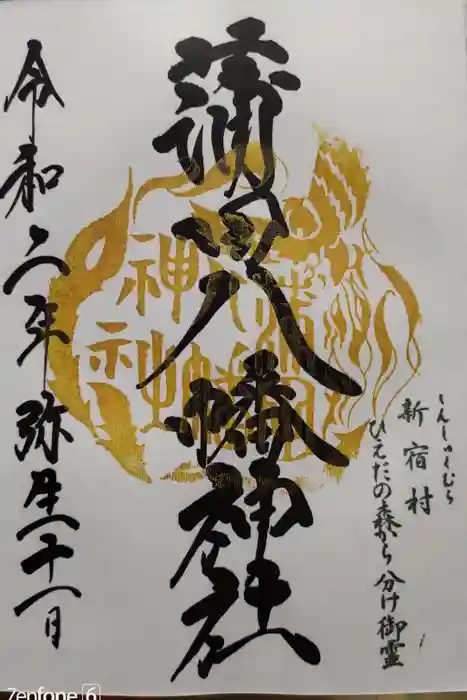 しんしゅくむら
新宿村
ひえだの森から分け御霊
蒲田八幡神社
蒲田八幡
神社
令和六年弥生二十一日
Zenfone 6